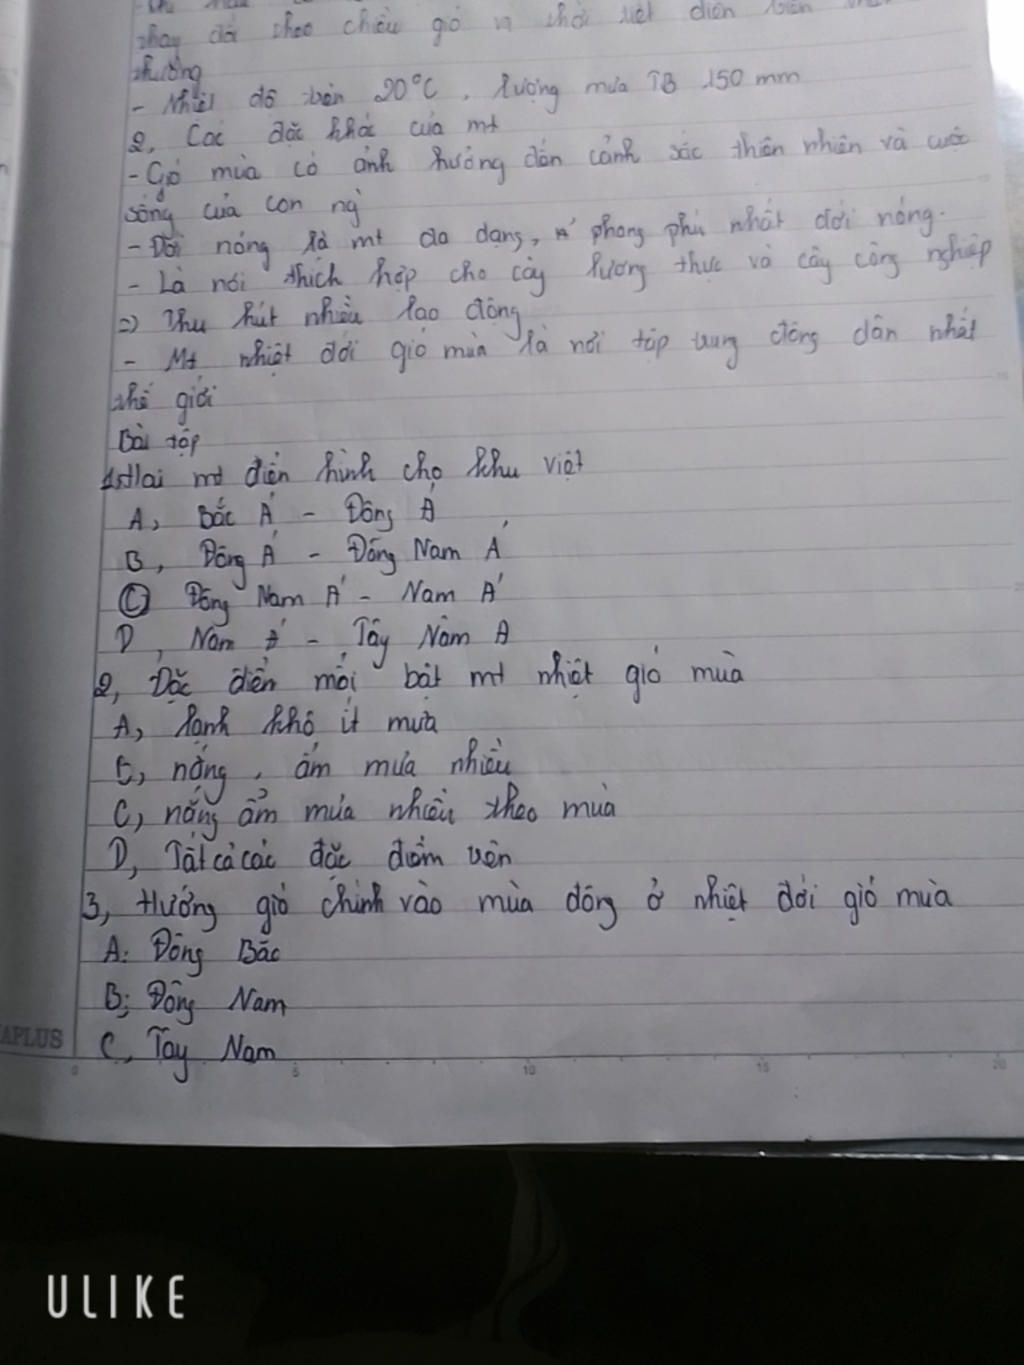 thay đổi theo chiều gió và thời tiết diễn biến thất
thường
- Nhiệt độ trên 20°C, lượng mưa TB 150 mm
2, Các đặc khác của mt
- Gió mùa có ảnh hưởng đến cảnh sắc thiên nhiên và cuộc
sống của con ng`
- Đới nóng là mt đa dạng, phong phú nhất đới nóng.
- Là nơi thích hợp cho cây lương thực và cây công nghiệp
=> Thu hút nhiều lao động
- Mt nhiệt đới gió mùa là nơi tập trung đông dân nhất
thế giới
Bài tập
1, Hai mt điển hình cho khu việt
A, Bắc Á - Đông Á
B, Đông Á - Đông Nam Á
C, Đông Nam Á - Nam Á
D, Nam Á - Tây Nam Á
2, Đặc điển nổi bật mt nhiệt gió mùa
A, lạnh khô ít mưa
B, nóng, ẩm mưa nhiều
C, nắng ẩm mưa nhiều theo mùa
D, Tất cả các đặc điểm trên
3, Hướng gió chính vào mùa đông ở nhiệt đới gió mùa
A: Đông Bắc
B; Đông Nam
C, Tây Nam
APLUS
0 5 10 15 20
ULIKE